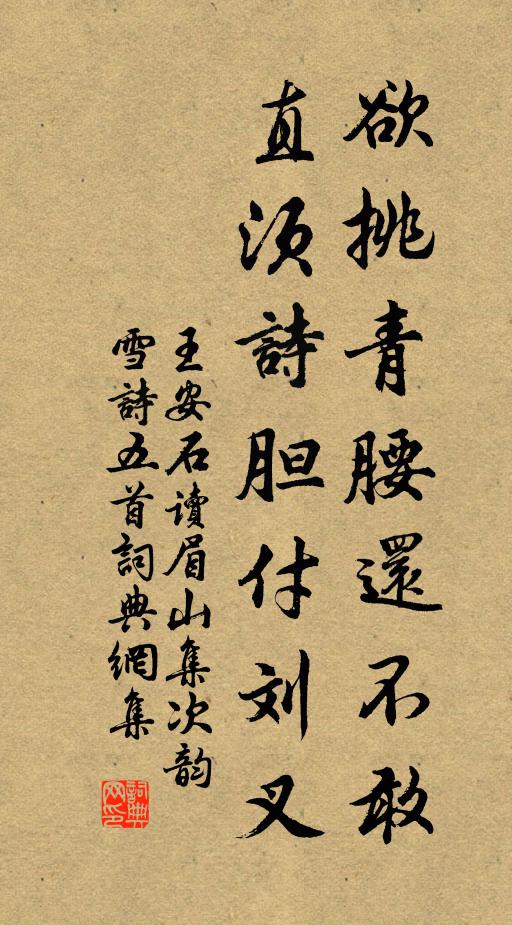 欲挑青腰還不敢
直须詩胆付刘叉
王安石讀眉山集次韵
雪詩五首詞典網集
詞典网印